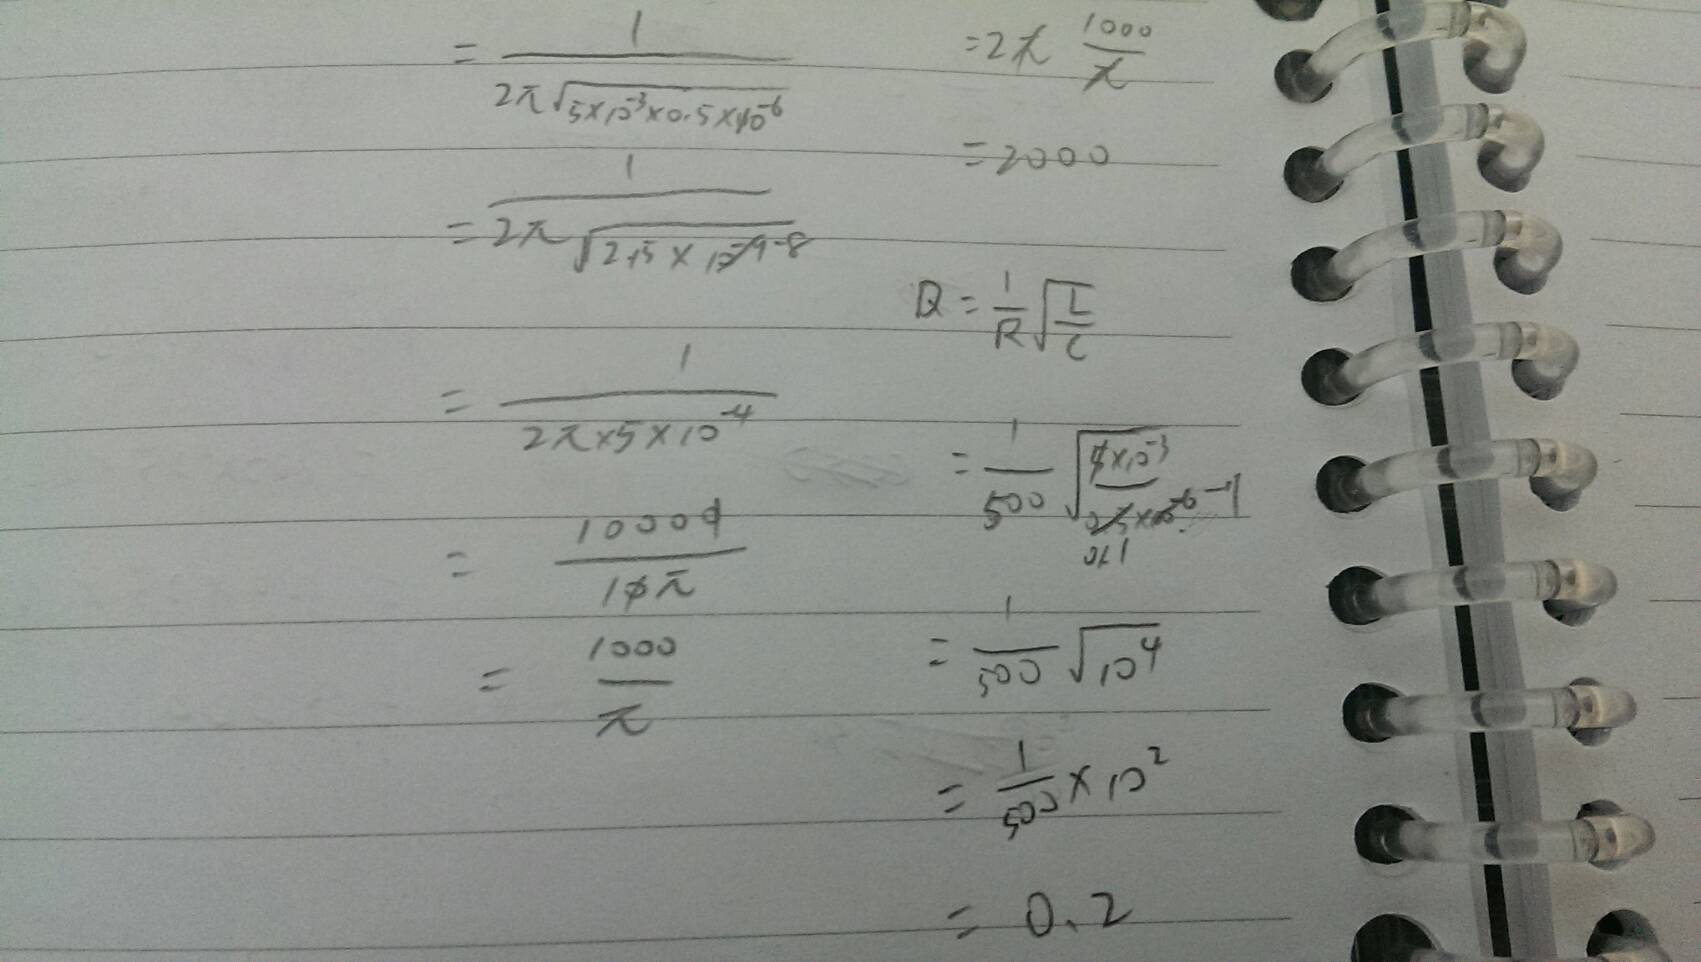 = 1 / 2π√(5×10⁻³×0.5×10⁻⁶)
= 1 / 2π√(2.5×10⁻⁹⁻⁸)
= 1 / 2π×5×10⁻⁴
= 10000 / 10π
= 1000 / π
=2π 1000/π
=2000
Q = 1/R √(L/C)
= 1/500 √(5×10⁻³ / 0.5×10⁻⁶⁻¹)
0.1
= 1/500 √(10⁴)
= 1/500 × 10²
= 0.2